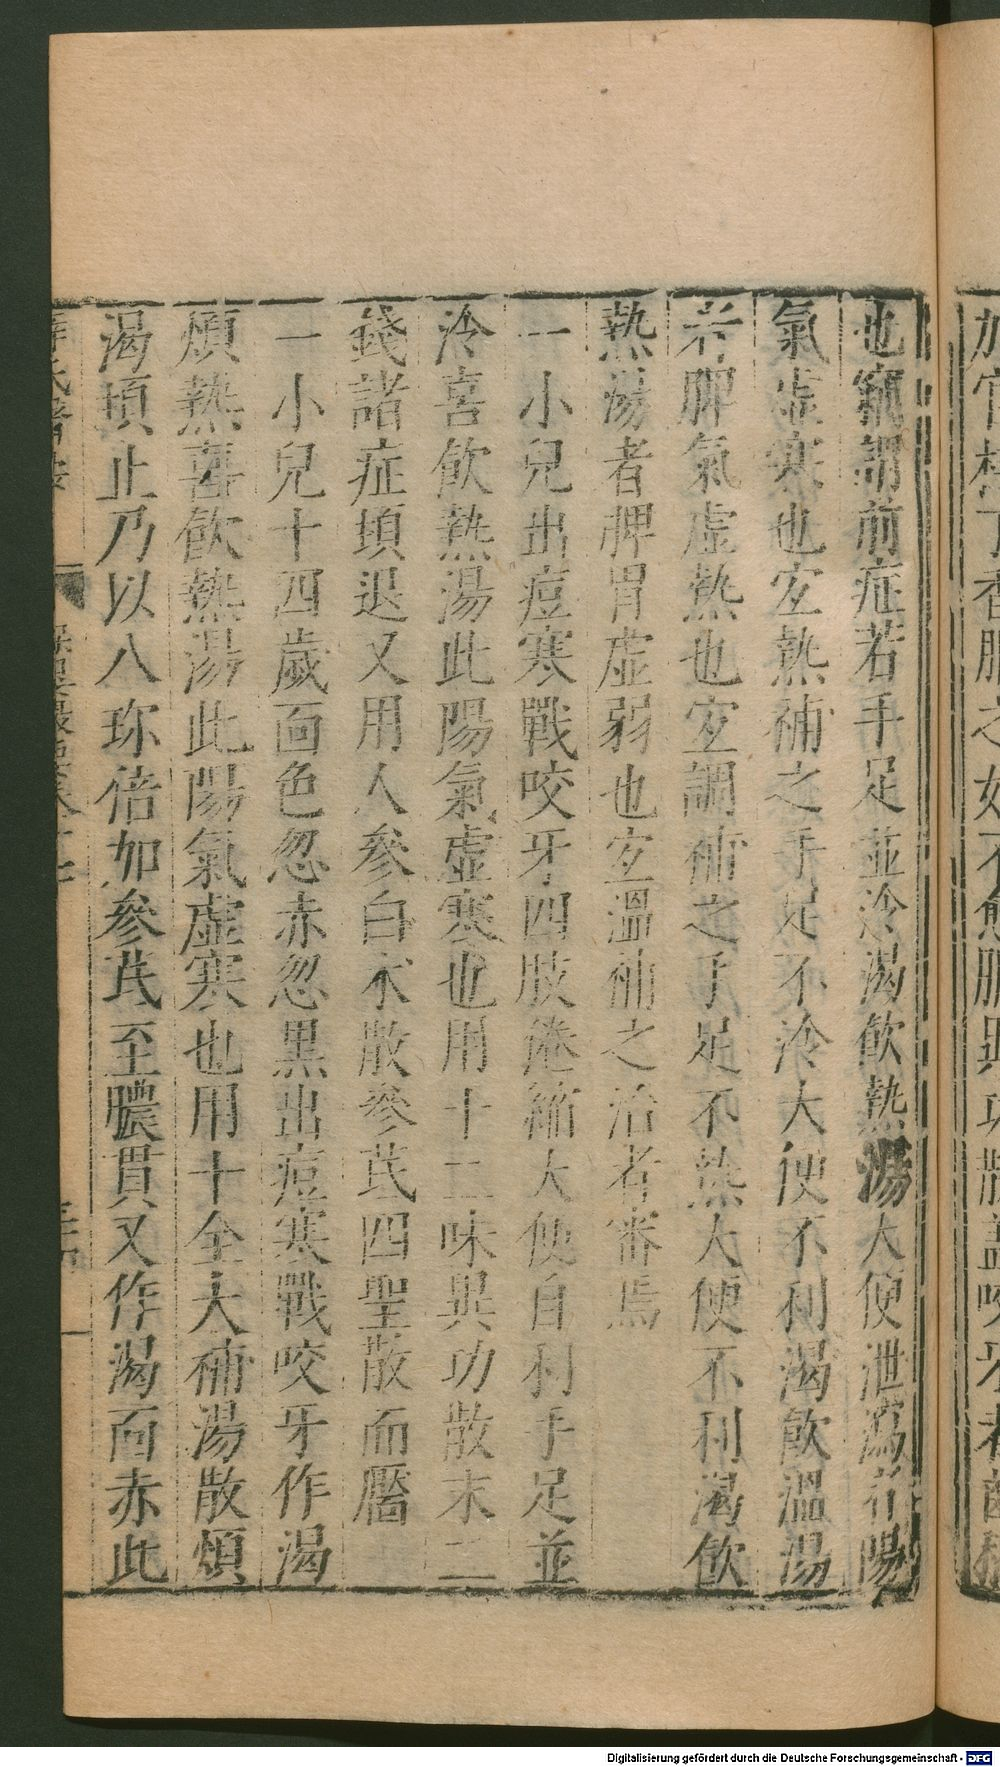 也竊謂前症若手足並冷渴飲熱湯大便泄瀉者陽
氣虛寒也宜熱補之手足不冷大便不利渴飲溫湯
者脾氣虛熱也宜調補之手足不熱大便不利渴飲
熱湯者脾胃虛弱也宜溫補之治者審焉
一小兒出痘寒戰咬牙四肢蜷縮大便自利手足並
冷喜飲熱湯此陽氣虛寒也用十二味異功散末二
錢諸症頃退又用人參白朮散參芪四聖散而靨
一小兒十四歲面色忽赤忽黑出痘寒戰咬牙作渴
煩熱喜飲熱湯此陽氣虛寒也用十全大補湯散煩
渴頃止乃以八珍倍加參芪至膿貫又作渴面赤此
Digitalisierung gefördert durch die Deutsche Forschungsgemeinschaft - DFG